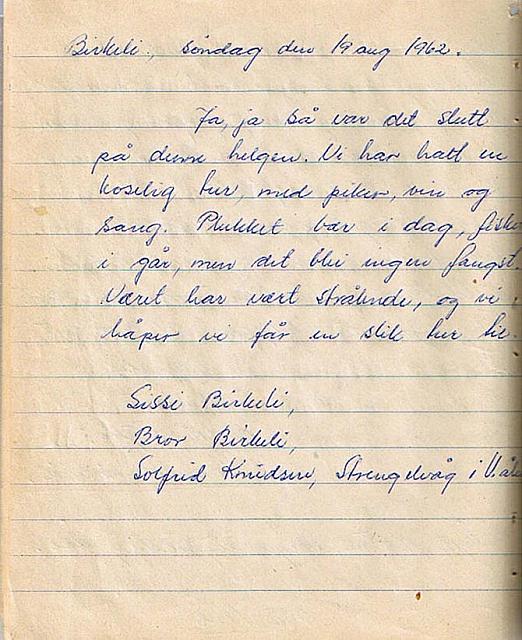 Birkeli., søndag den 19 aug 1962.
Ja, ja så var det slutt
på denne helgen. Vi har hatt en
koselig tur, med piker, vin og
sang. Plukket bær i dag, fisket
i går, men det blei ingen fangst.
Været har vært strålende, og vi
håper vi får en slik tur til.
Sissi Birkeli,
Bror Birkeli,
Solfrid Knudsen, Strengelvåg i V.ål